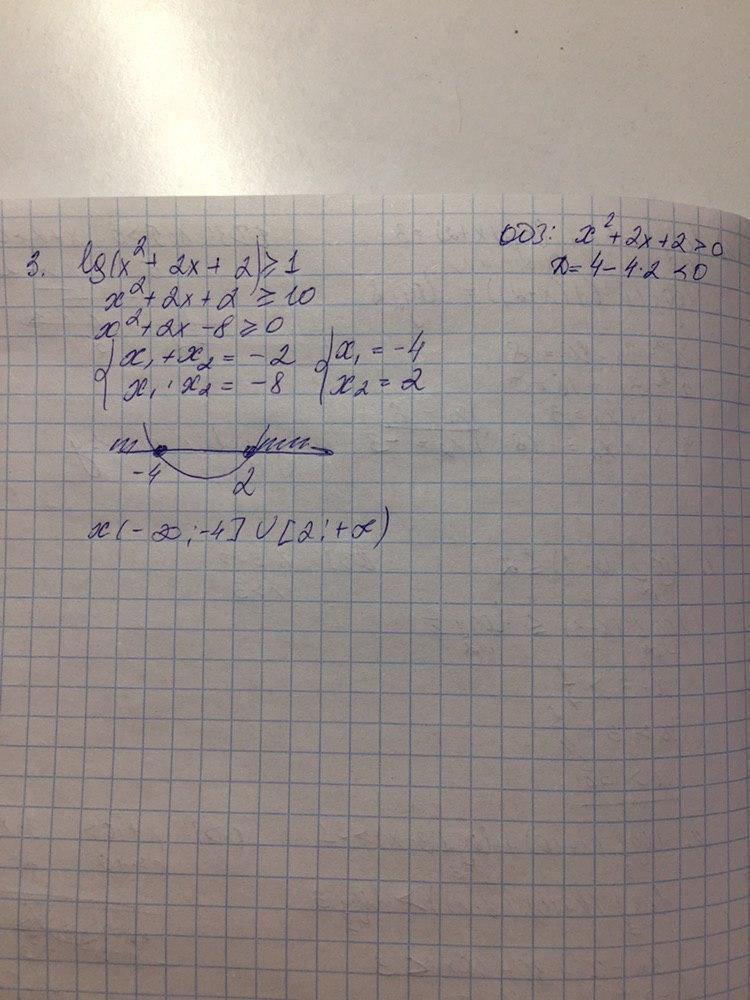 3. lg(x²+ 2x + 2) ≥ 1
x²+2x+2 ≥ 10
x²+2x -8 ≥ 0
{ x₁ + x₂ = -2 { x₁ = -4
x₁ · x₂ = -8 x₂ = 2
-4 2
x (-∞; -4] ∪ [2; +∞)
ОДЗ: x²+2x+2 >0
D= 4-4·2 <0